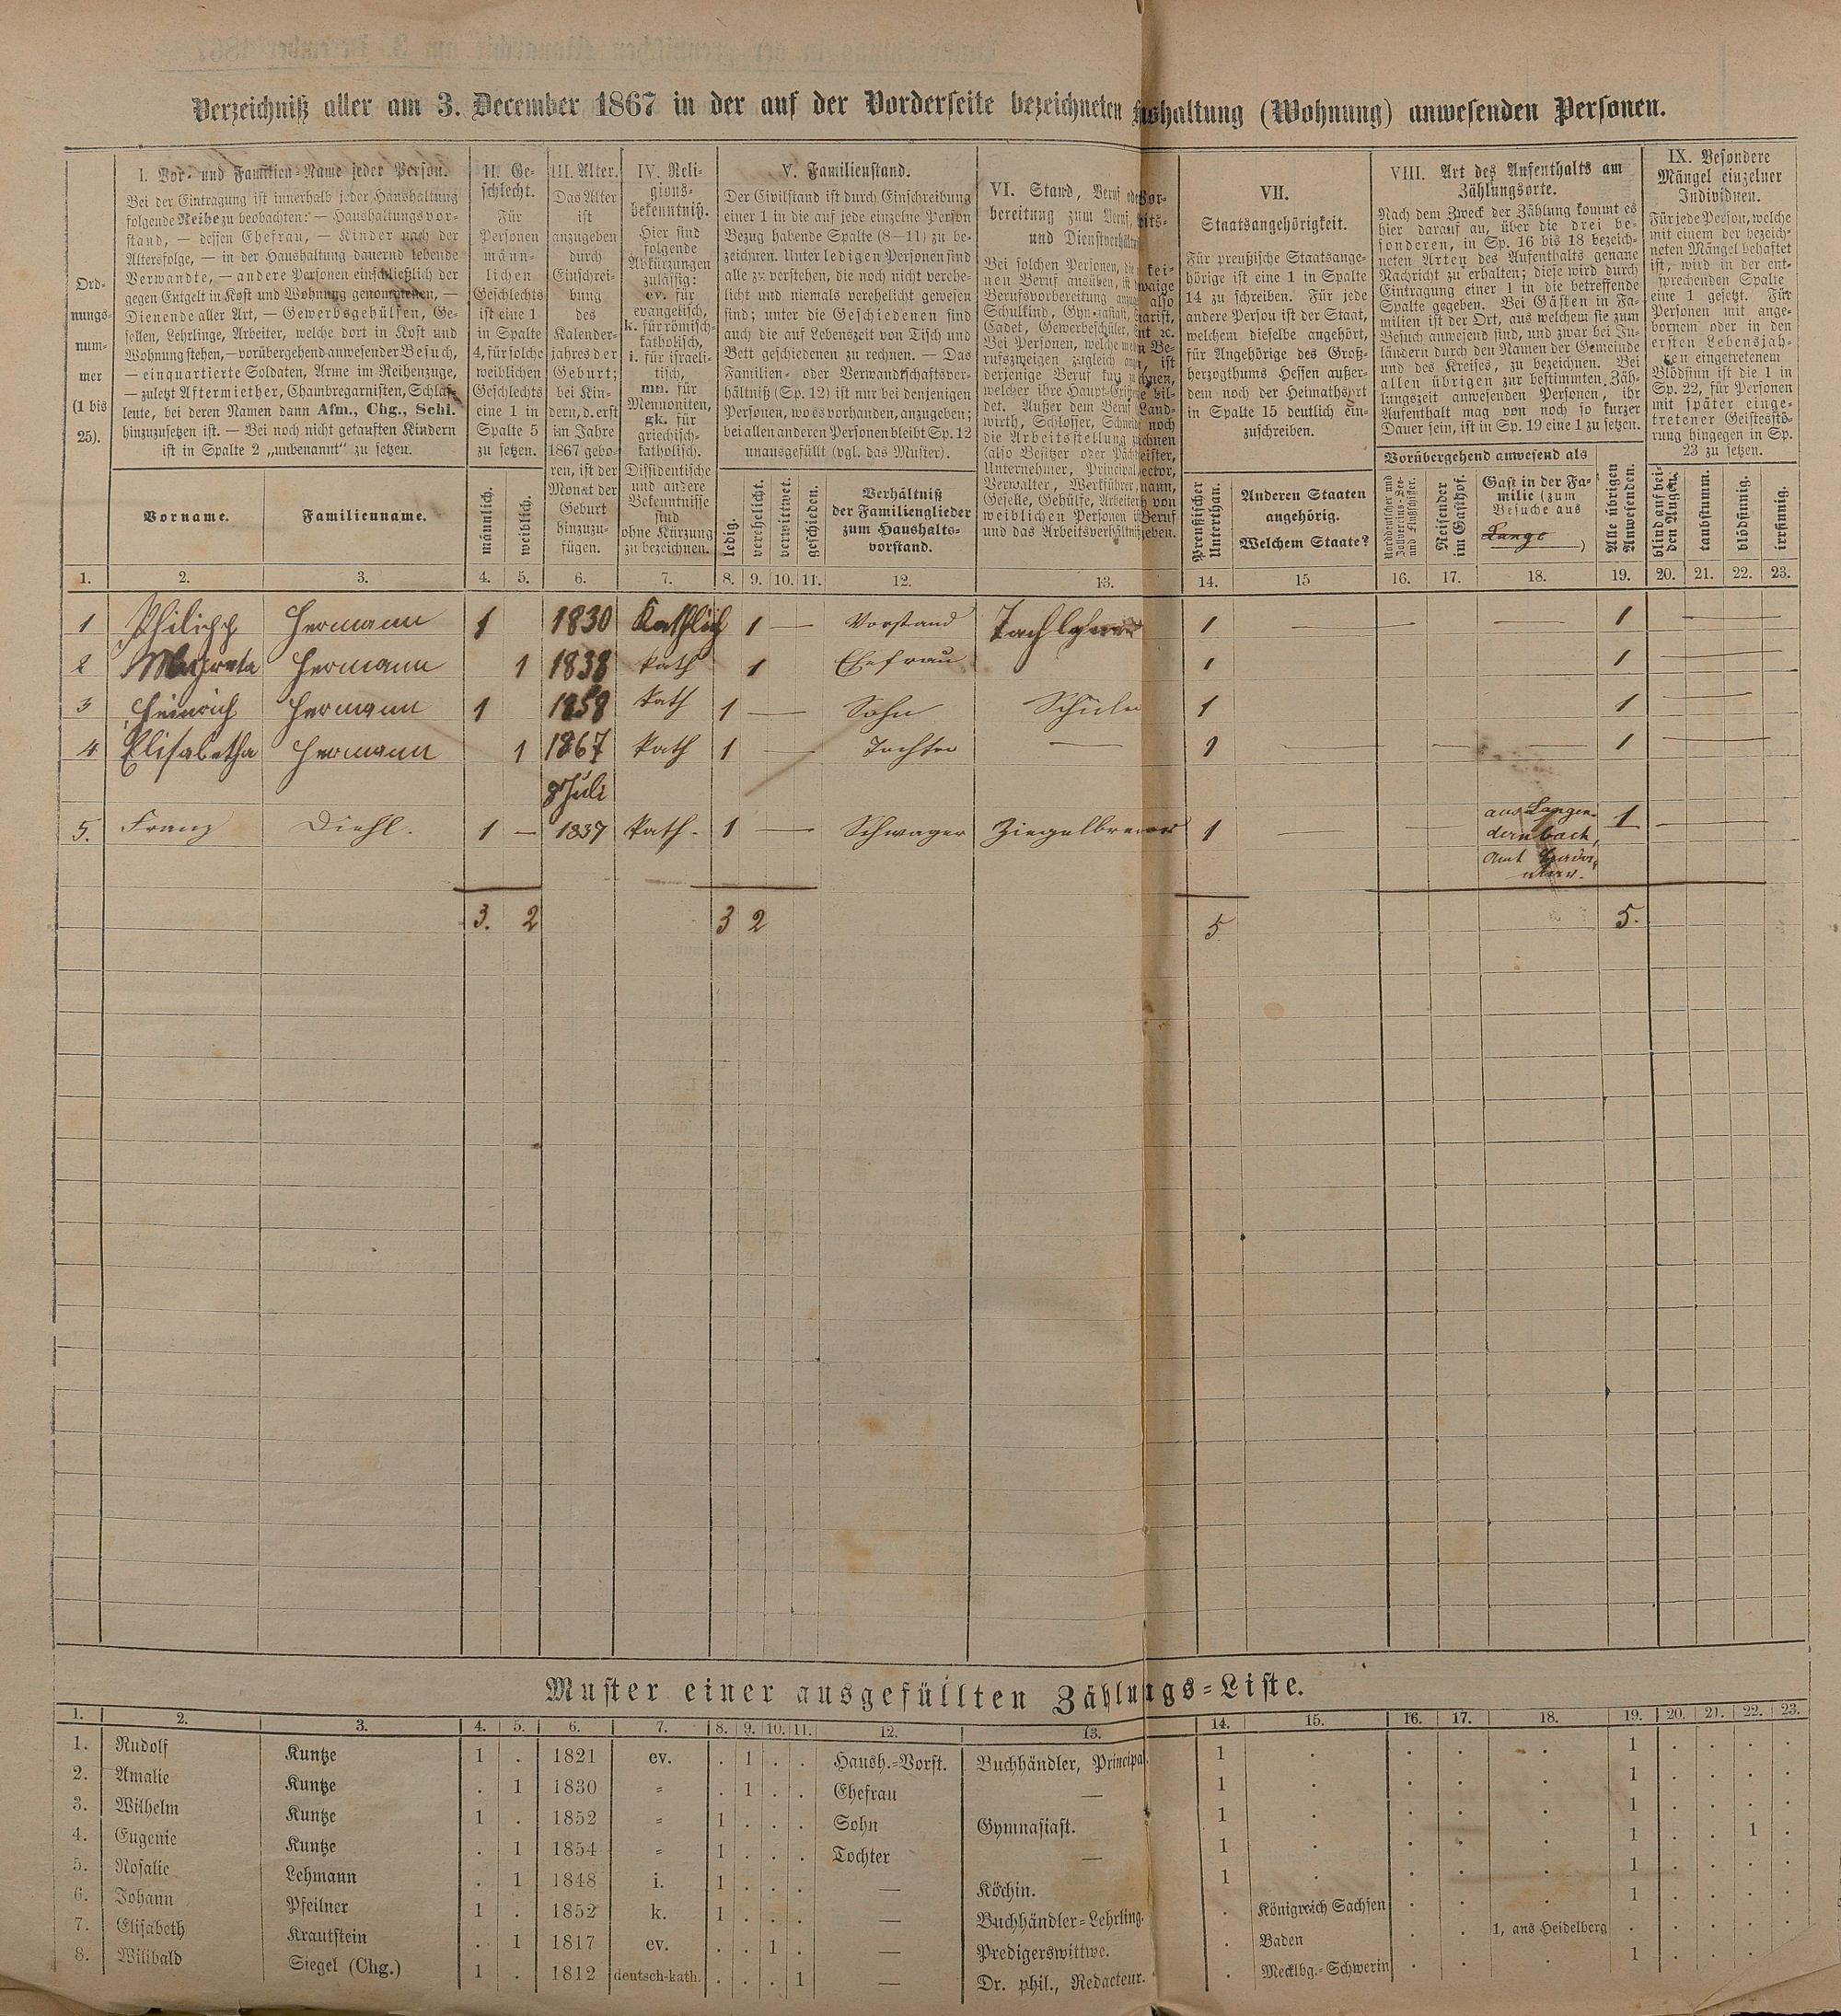 Verzeichniß aller am 3. December 1867 in der auf der Vorderseite bezeichneten haltung (Wohnung) anwesenden Personen.
Ord-
nungs-
num-
mer
(1 bis
25).
I. Vor- und Familien-Name jeder Person.
Bei der Eintragung ist innerhalb jeder Haushaltung
folgende Reihe zu beobachten: — Haushaltungsvor-
stand, — dessen Ehefrau, — Kinder nach der
Altersfolge, — in der Haushaltung dauernd lebende
Verwandte, — andere Personen einschließlich der
gegen Entgelt in Kost und Wohnung genommenen, —
Dienende aller Art, — Gewerbsgehülfen, Ge-
sellen, Lehrlinge, Arbeiter, welche dort in Kost und
Wohnung stehen, — vorübergehend anwesender Besuch,
— einquartierte Soldaten, Arme im Reihenzuge,
— zuletzt Aftermiether, Chambregarnisten, Schlaf-
leute, bei deren Namen dann Afm., Chg., Schl.
hinzuzusetzen ist. — Bei noch nicht getauften Kindern
ist in Spalte 2 „unbenannt“ zu setzen.
Vorname.
Familienname.
II. Ge-
schlecht.
Für
Personen
männ-
lichen
Geschlechts
ist eine 1
in Spalte
4, für solche
weiblichen
Geschlechts
eine 1 in
Spalte 5
zu setzen.
männlich.
weiblich.
III. Alter.
Das Alter
ist
anzugeben
durch
Einschrei-
bung
des
Kalender-
jahres der
Geburt;
bei Kin-
dern, d. erst
im Jahre
1867 gebo-
ren, ist der
Monat der
Geburt
hinzuzu-
fügen.
IV. Reli-
gions-
bekenntniß.
Hier sind
folgende
Abkürzungen
zulässig:
ev. für
evangelisch,
k. für römisch-
katholisch,
i. für israeli-
tisch,
mn. für
Mennoniten,
gk. für
griechisch-
katholisch.
Dissidentische
und andere
Bekenntnisse
sind
ohne Kürzung
zu bezeichnen.
V. Familienstand.
Der Civilstand ist durch Einschreibung
einer 1 in die auf jede einzelne Person
Bezug habende Spalte (8—11) zu be-
zeichnen. Unter ledigen Personen sind
alle zu verstehen, die noch nicht verehe-
licht und niemals verehelicht gewesen
sind; unter die Geschiedenen sind
auch die auf Lebenszeit von Tisch und
Bett geschiedenen zu rechnen. — Das
Familien- oder Verwandtschaftsver-
hältniß (Sp. 12) ist nur bei denjenigen
Personen, wo es vorhanden, anzugeben;
bei allen anderen Personen bleibt Sp. 12
unausgefüllt (vgl. das Muster).
ledig.
verehelicht.
verwittwet.
geschieden.
Verhältniß
der Familienglieder
zum Haushalts-
vorstand.
VI. Stand, Beruf Vor-
bereitung zum Beruf,
und
Bei solchen Personen, die kei-
nen Beruf ausüben, ist
Berufsvorbereitung also
Schulkind, Gymnasiast,
Cadet, Gewerbeschüler,
Bei Personen, welche Be-
rufszweigen zugleich ist
derjenige Beruf kurz
welcher ihre
det. Außer dem Beruf Land-
wirth, Schlosser, noch
die Arbeitsstellung
(also Besitzer oder
Unternehmer, Principal,
Verwalter, Werkführer,
Geselle, Gehülfe, Arbeiter von
weiblichen Personen Beruf
und das
VII.
Staatsangehörigkeit.
Für preußische Staatsange-
hörige ist eine 1 in Spalte
14 zu schreiben. Für jede
andere Person ist der Staat,
welchem dieselbe angehört,
für Angehörige des Groß-
herzogthums Hessen außer-
dem noch der Heimathsort
in Spalte 15 deutlich ein-
zuschreiben.
Preußischer
Unterthan.
Anderen Staaten
angehörig.
Welchem Staate?
VIII. Art des Aufenthalts am
Zählungsorte.
Nach dem Zweck der Zählung kommt es
hier darauf an, über die drei be-
sonderen, in Sp. 16 bis 18 bezeich-
neten Arten des Aufenthalts genaue
Nachricht zu erhalten; diese wird durch
Eintragung einer 1 in die betreffende
Spalte gegeben. Bei Gästen in Fa-
milien ist der Ort, aus welchem sie zum
Besuch anwesend sind, und zwar bei In-
ländern durch den Namen der Gemeinde
und des Kreises, zu bezeichnen. Bei
allen übrigen zur bestimmten Zäh-
lungszeit anwesenden Personen, ihr
Aufenthalt mag von noch so kurzer
Dauer sein, ist in Sp. 19 eine 1 zu setzen.
Vorübergehend anwesend als
Norddeutscher und
Zollvereins-See-
und Flußschiffer.
Reisender
im Gasthof.
Gast in der Fa-
milie (zum
Besuche aus
)
Alle übrigen
Anwesenden.
IX. Besondere
Mängel einzelner
Individuen.
Für jede Person, welche
mit einem der bezeich-
neten Mängel behaftet
ist, wird in der ent-
sprechenden Spalte
eine 1 gesetzt. Für
Personen mit ange-
bornem oder in den
ersten Lebensjah-
ren eingetretenem
Blödsinn ist die 1 in
Sp. 22, für Personen
mit später einge-
tretener Geistesstö-
rung hingegen in Sp.
23 zu setzen.
blind auf bei-
den Augen.
taubstumm.
blödsinnig.
irrsinnig.
1. 2. 3. 4. 5. 6. 7. 8. 9. 10. 11. 12. 13. 14. 15 16. 17. 18. 19. 20. 21. 22. 23.
1 Philipp Hermann 1 1830 1 — Vorstand 1 — — — 1 —
2 Hermann 1 1838 kath 1 Ehefrau 1 1 —
3 Heinrich Hermann 1 1858 kath 1 — Sohn Schüler 1 1 —
4 Elisabetha Hermann 1 1867 kath 1 — Tochter — 1 — — — 1 —
8 Juli
5. Franz Diehl. 1 — 1837 kath. 1 — Schwager Ziegelbrenner 1 — — aus Langen- 1 —
dernbach,
Amt Hada-
mar.
3. 2 3 2 5 5.
Muster einer ausgefüllten Zählungs-Liste.
1. 2. 3. 4. 5. 6. 7. 8. 9. 10. 11. 12. 13. 14. 15. 16. 17. 18. 19. 20. 21. 22. 23.
1. Rudolf Kuntze 1 . 1821 ev. . 1 . . Haush.-Vorst. Buchhändler, Principal. 1 . . . . 1 . . . .
2. Amalie Kuntze . 1 1830 = . 1 . . Ehefrau — 1 . . . . 1 . . . .
3. Wilhelm Kuntze 1 . 1852 = 1 . . . Sohn Gymnasiast. 1 . . . . 1 . . . .
4. Eugenie Kuntze . 1 1854 = 1 . . . Tochter — 1 . . . . 1 . . 1 .
5. Rosalie Lehmann . 1 1848 i. 1 . . . — Köchin. 1 . . . . 1 . . . .
6. Johann Pfeilner 1 . 1852 k. 1 . . . — Buchhändler-Lehrling. . Königreich Sachsen . . . 1 . . . .
7. Elisabeth Krautstein . 1 1817 ev. . . 1 . — Predigerswittwe. . Baden . . 1, aus Heidelberg . . . . .
8. Wilibald Siegel (Chg.) 1 . 1812 deutsch-kath. . . . 1 — Dr. phil., Redacteur. . Mecklbg.-Schwerin . . . 1 . . . .